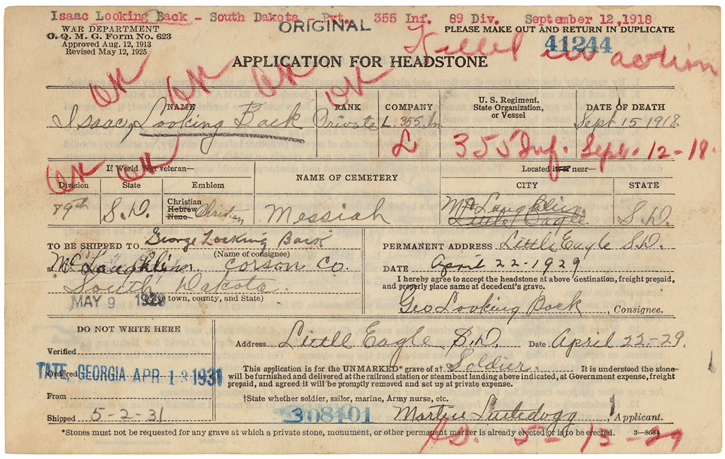 Isaac Looking Back - South Dakota Pvt. 355 Inf. 89 Div. September 12, 1918
WAR DEPARTMENT
O. Q. M. G. Form No. 623
Approved Aug. 12, 1913
Revised May 12, 1925
ORIGINAL
PLEASE MAKE OUT AND RETURN IN DUPLICATE
41244
Killed in action
APPLICATION FOR HEADSTONE
OK OK OK OK
NAME RANK COMPANY U. S. Regiment, State Organization, or Vessel DATE OF DEATH
Isaac Looking Back Private L. 355. In Sept 15 1918.
L 355 Inf. Sept. 12-18.
OK OK
If World War veteran—
Division State Emblem
NAME OF CEMETERY
Located in or near—
CITY STATE
89th S.D. Christian Hebrew None Christian Messiah McLaughlin S.D.
Little Eagle
TO BE SHIPPED TO George Looking Back
(Name of consignee)
McLaughlin Corson Co.
South Dakota
MAY 9 1929 town, county, and State)
PERMANENT ADDRESS Little Eagle S.D.
DATE April 22-1929
I hereby agree to accept the headstone at above destination, freight prepaid, and properly place same at decedent's grave.
Geo Looking Back, Consignee.
DO NOT WRITE HERE
Verified
Ordered
TATE, GEORGIA APR 13 1931
From
Shipped 5-2-31
Address Little Eagle S.D. Date April 22-29.
This application is for the UNMARKED grave of a Soldier. It is understood the stone
will be furnished and delivered at the railroad station or steamboat landing above indicated, at Government expense, freight
prepaid, and agreed it will be promptly removed and set up at private expense.
†State whether soldier, sailor, marine, Army nurse, etc.
308401
Martin Applicant.
5-13-29
*Stones must not be requested for any grave at which a private stone, monument, or other permanent marker is already erected or is to be erected.